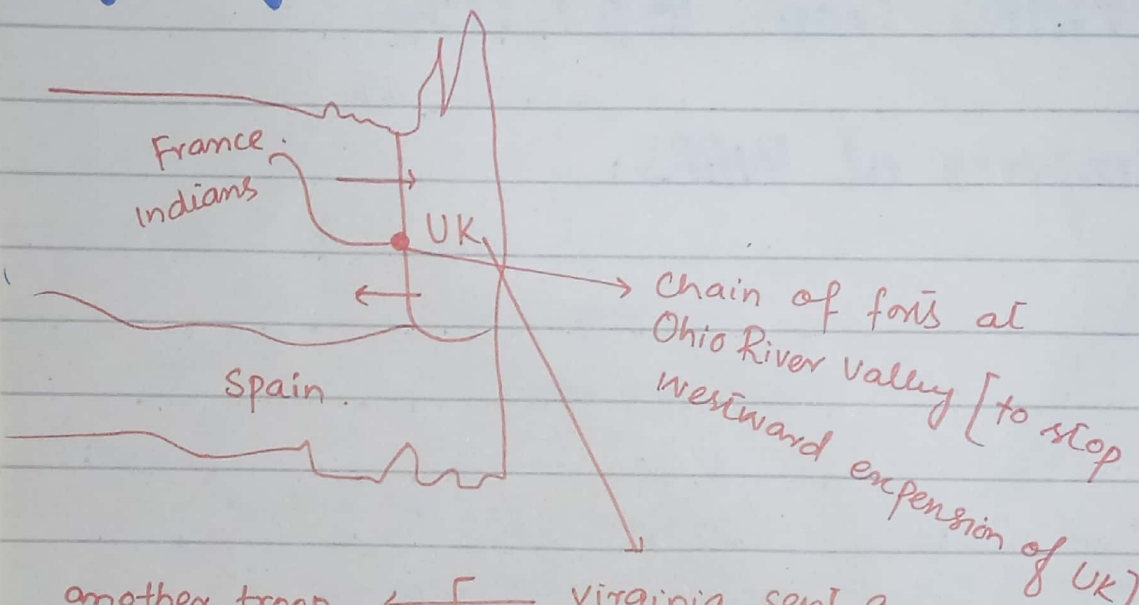 France.
Indians
UK
Chain of forts at
Ohio River Valley [to stop
Westward expension of UK]
Spain.
another troop
virginia sent a